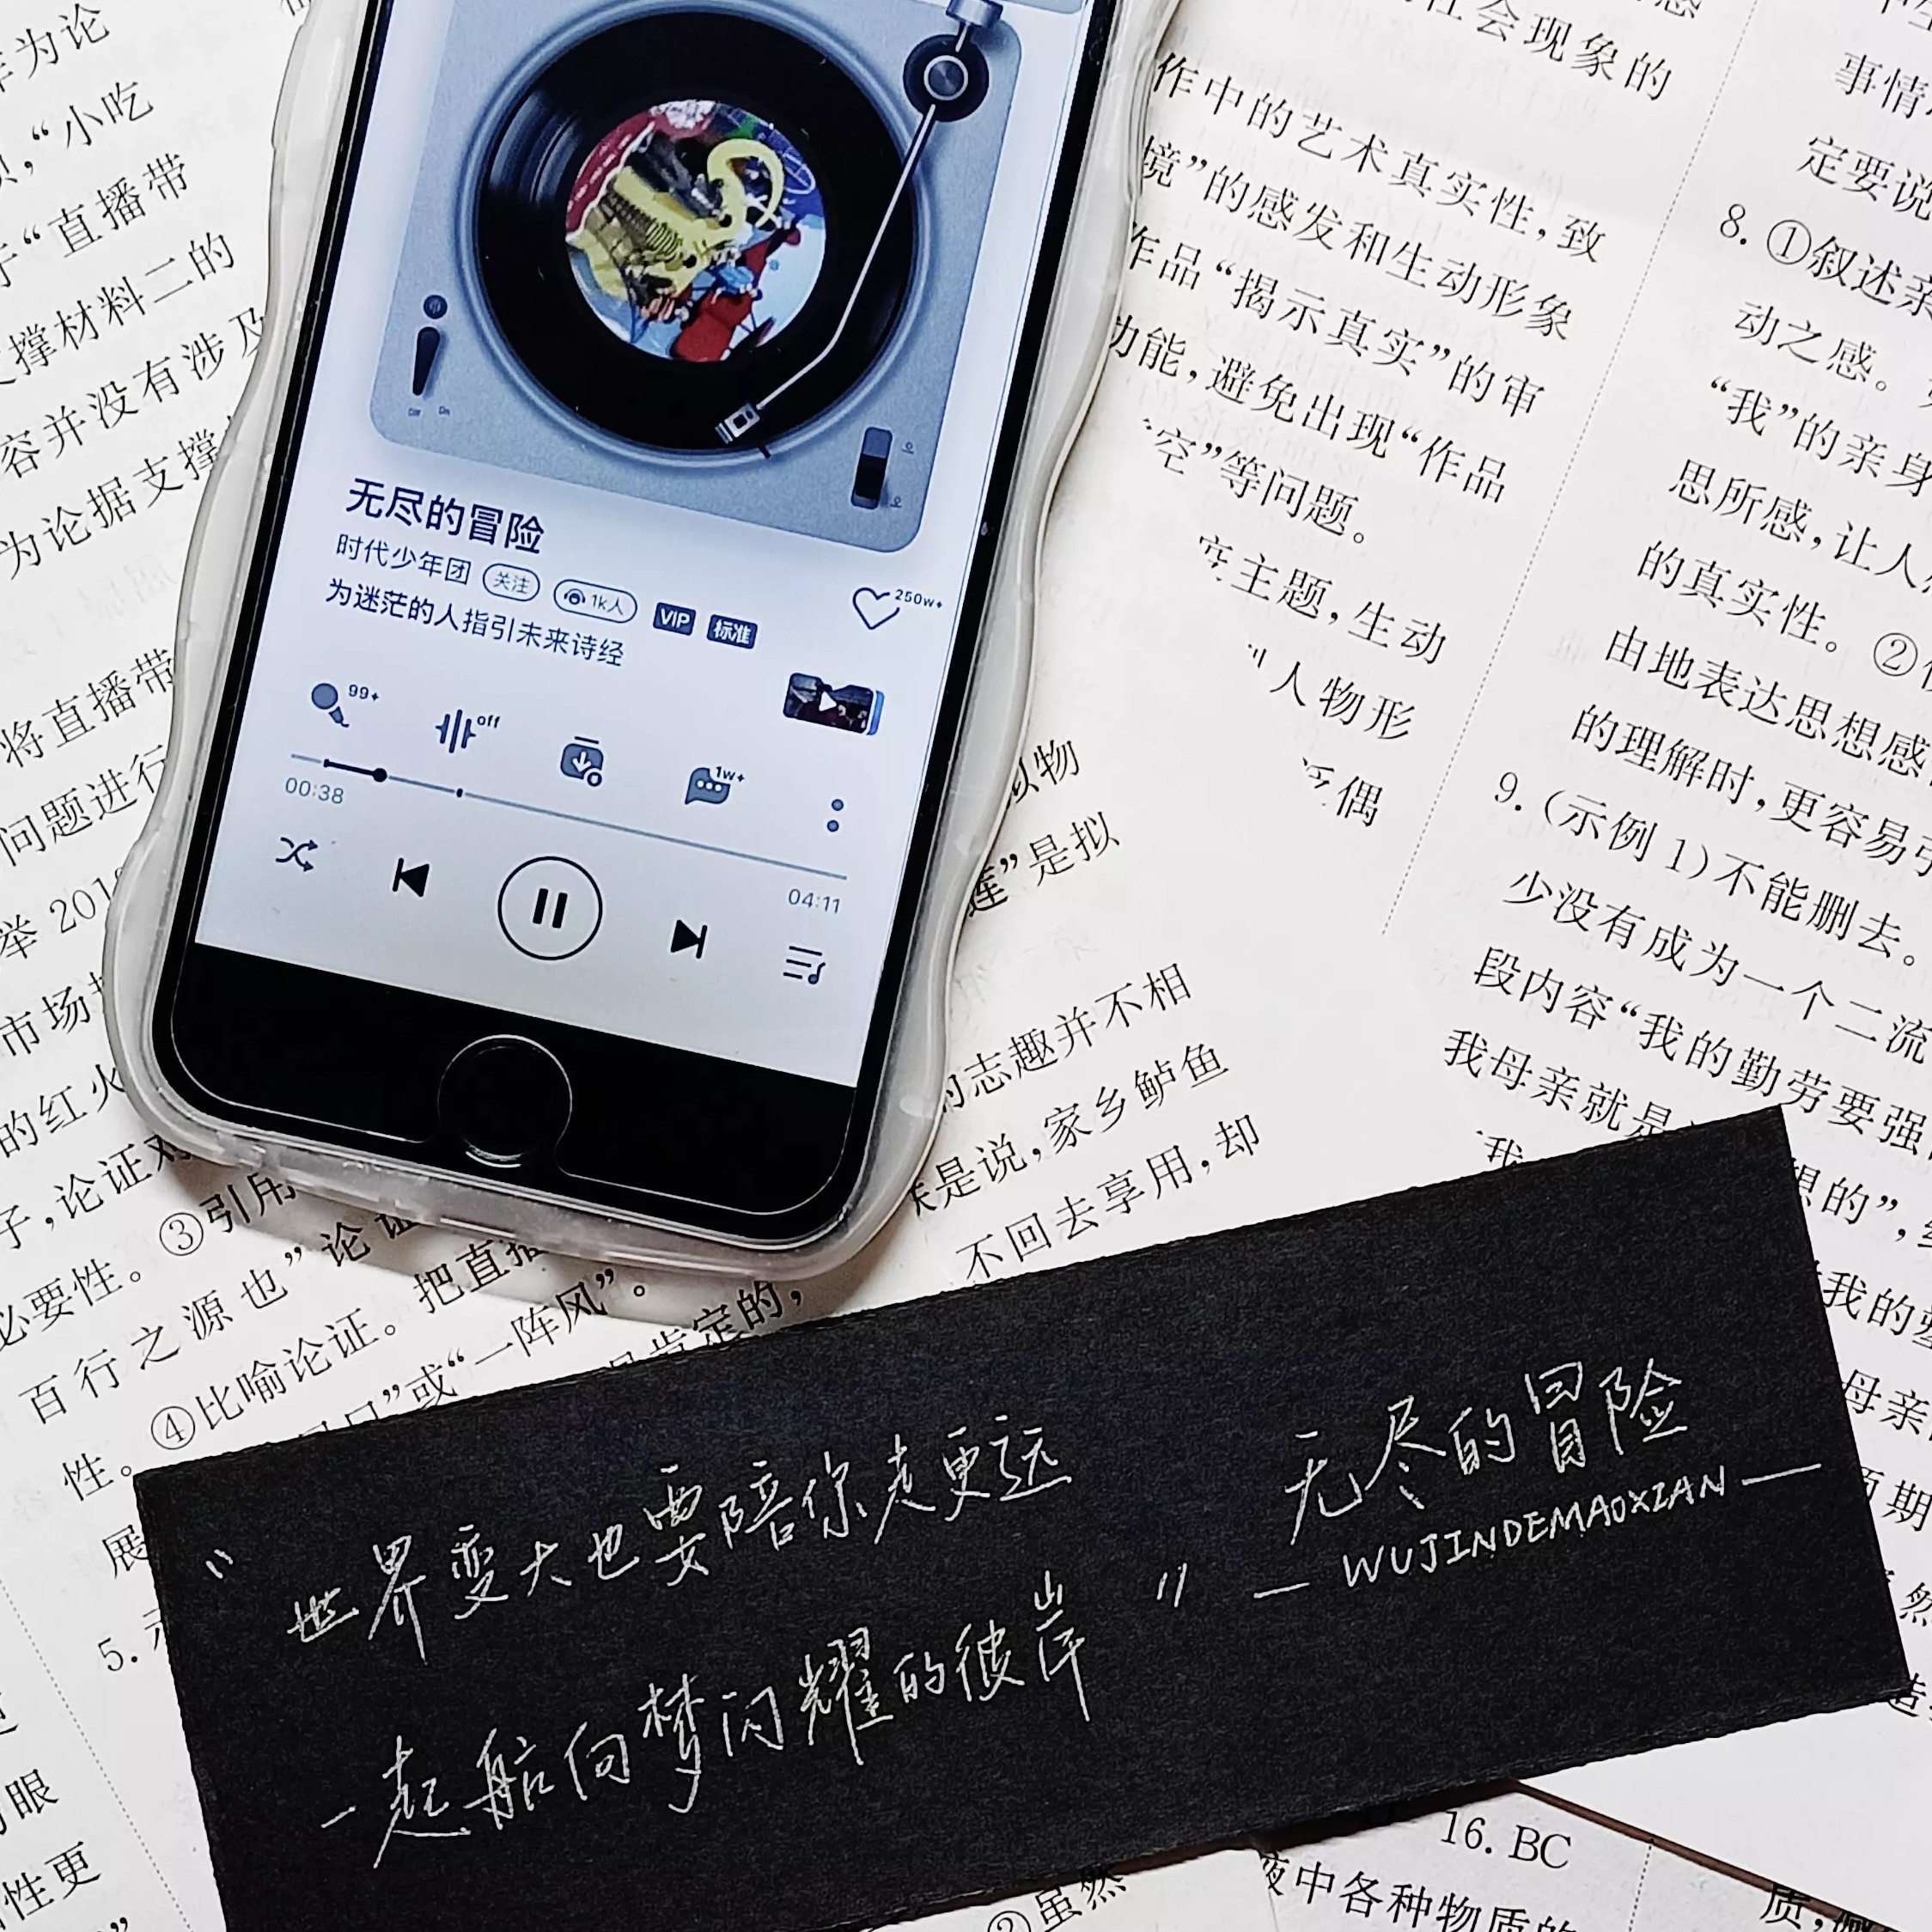 作中的艺术真实性，致
境”的感发和生动形象
作品“揭示真实”的审
功能，避免出现“作品
空”等问题。
主题，生动
人物形
偶
社会现象的
事情
定要说
8. ①叙述亲
动之感。
“我”的亲身
思所感，让人
的真实性。②
由地表达思想感
的理解时，更容易引
9. （示例 1）不能删去。
少没有成为一个二流
段内容“我的勤劳要强
我母亲就是
想的”，
我的
母亲
期
为论
，“小吃
“直播带
支撑材料二的
容并没有涉及
为论据支撑
将直播带
问题进行
举 201
市场
的红火
子，论证对
必要性。③引用
百行之源也”论证
性。④比喻论证。把直播
”或“一阵风”。
肯定的，
展
5.
眼
性更
物
莲”是拟
的志趣并不相
是说，家乡鲈鱼
不回去享用，却
Off On
无尽的冒险
时代少年团 关注 1k人 VIP 标准
250w+
为迷茫的人指引未来诗经
99+ off 1w+
00:38 04:11
“世界变大也要陪你走更远
一起航向梦闪耀的彼岸”
无尽的冒险
— WUJINDEMAOXIAN —
16. BC
②虽然
液中各种物质的
质，